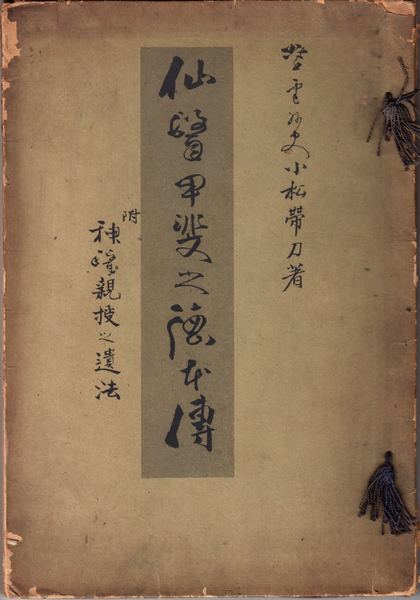 雲外史小松帶刀著
仙醫甲斐之德本傳
附
神醫親授之遺法